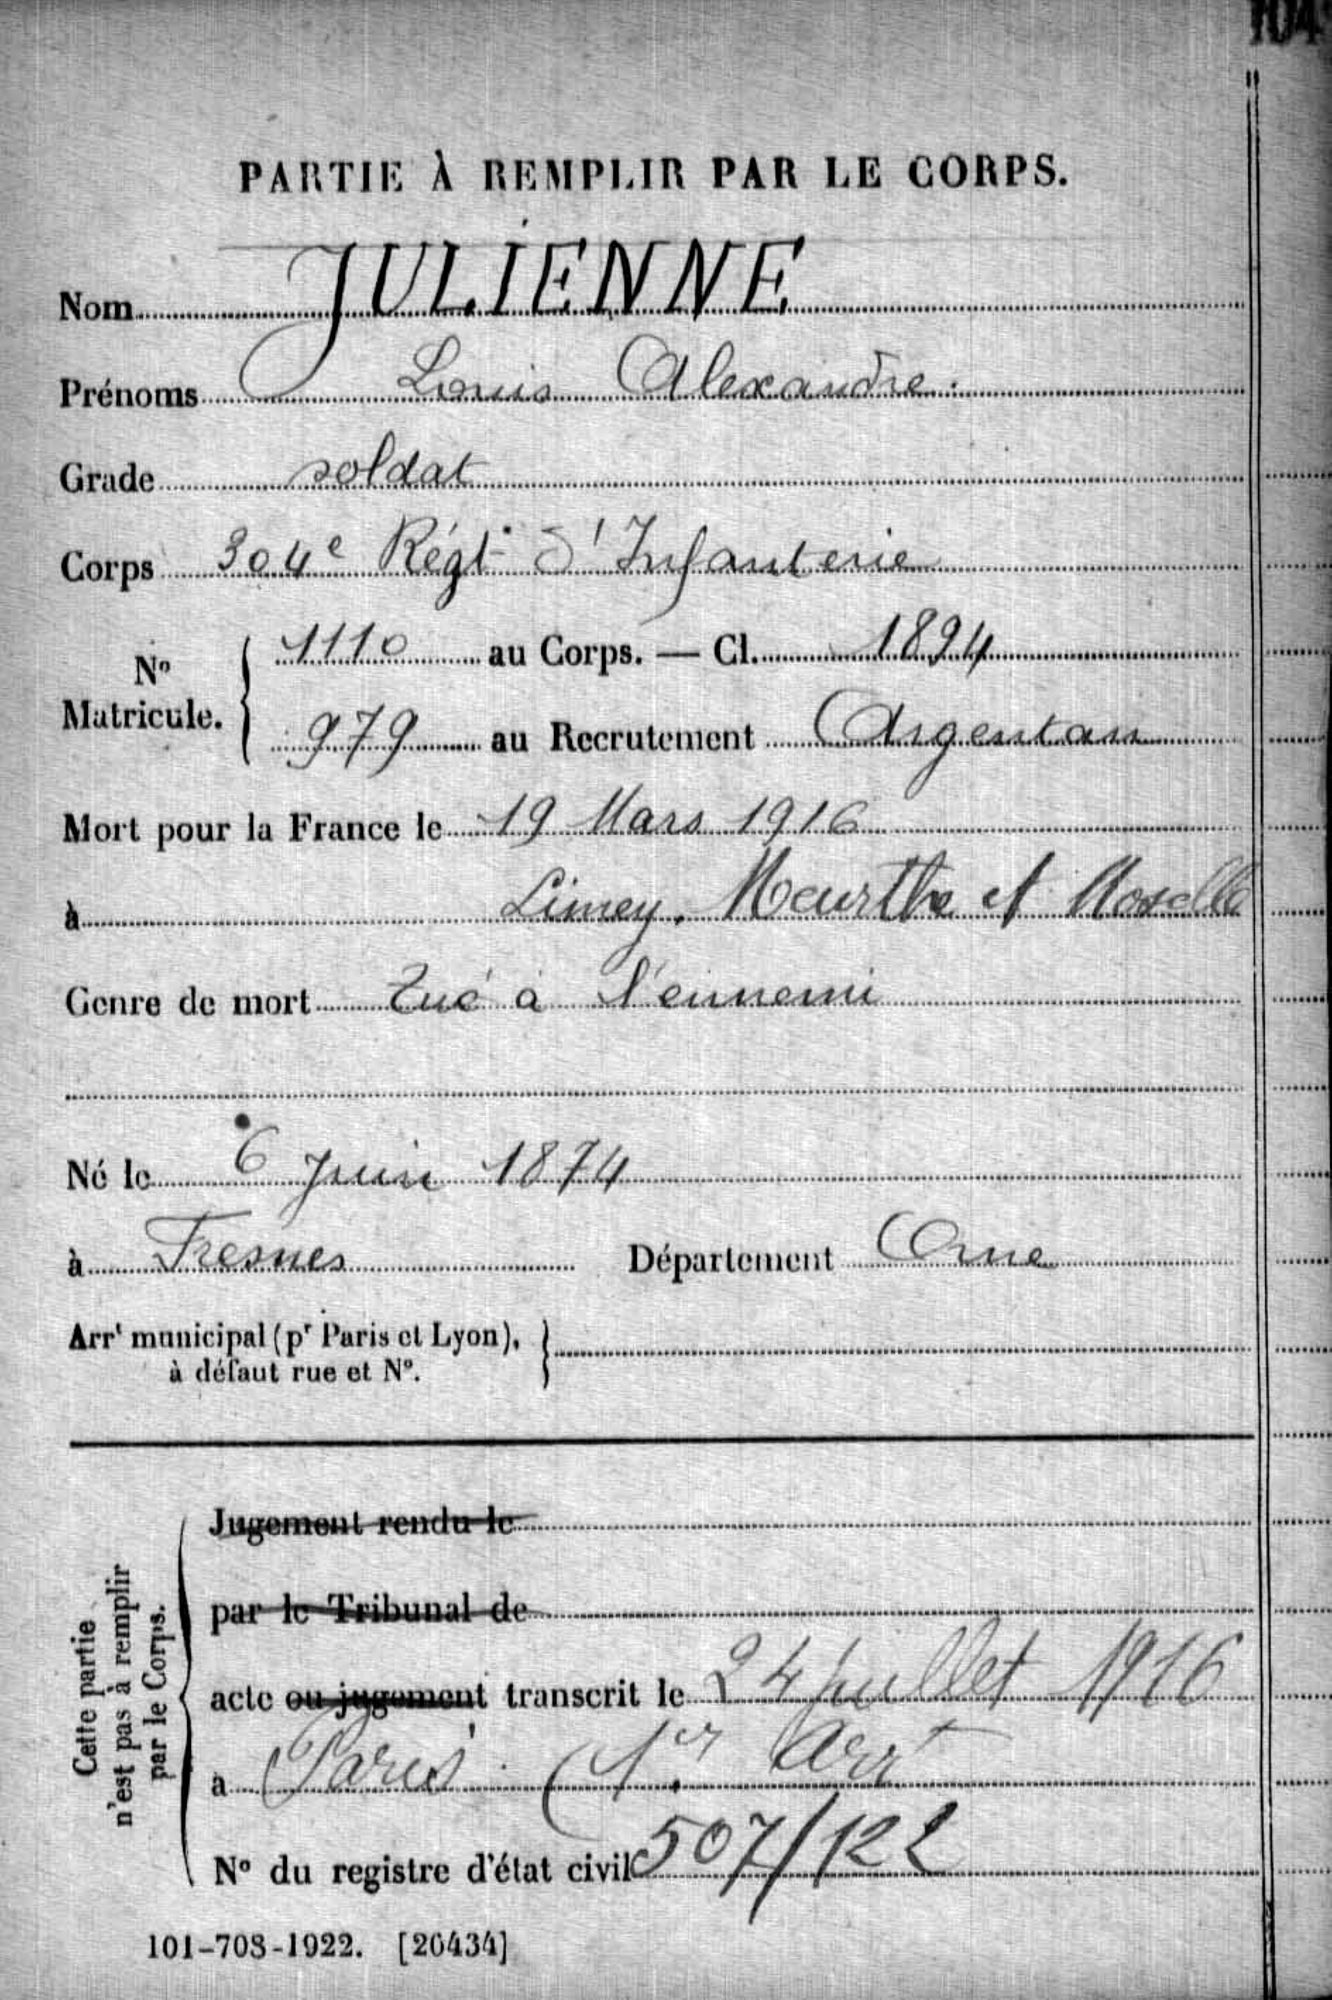 104
PARTIE À REMPLIR PAR LE CORPS.
Nom JULIENNE
Prénoms Louis Alexandre.
Grade soldat
Corps 304e Régt d'Infanterie
No Matricule. { 1110 au Corps. — Cl. 1894
979 au Recrutement Argentan
Mort pour la France le 19 Mars 1916
à Limey. Meurthe et Moselle
Genre de mort tué à l'ennemi
Né le 6 Juin 1874
à Fresnes Département Orne
Arrt municipal (pr Paris et Lyon), }
à défaut rue et No.
Cette partie
n'est pas à remplir
par le Corps.
Jugement rendu le
par le Tribunal de
acte ou jugement transcrit le 24 juillet 1916
a Paris (1er Arrt
No du registre d'état civil 507/122
101-708-1922. [26434]